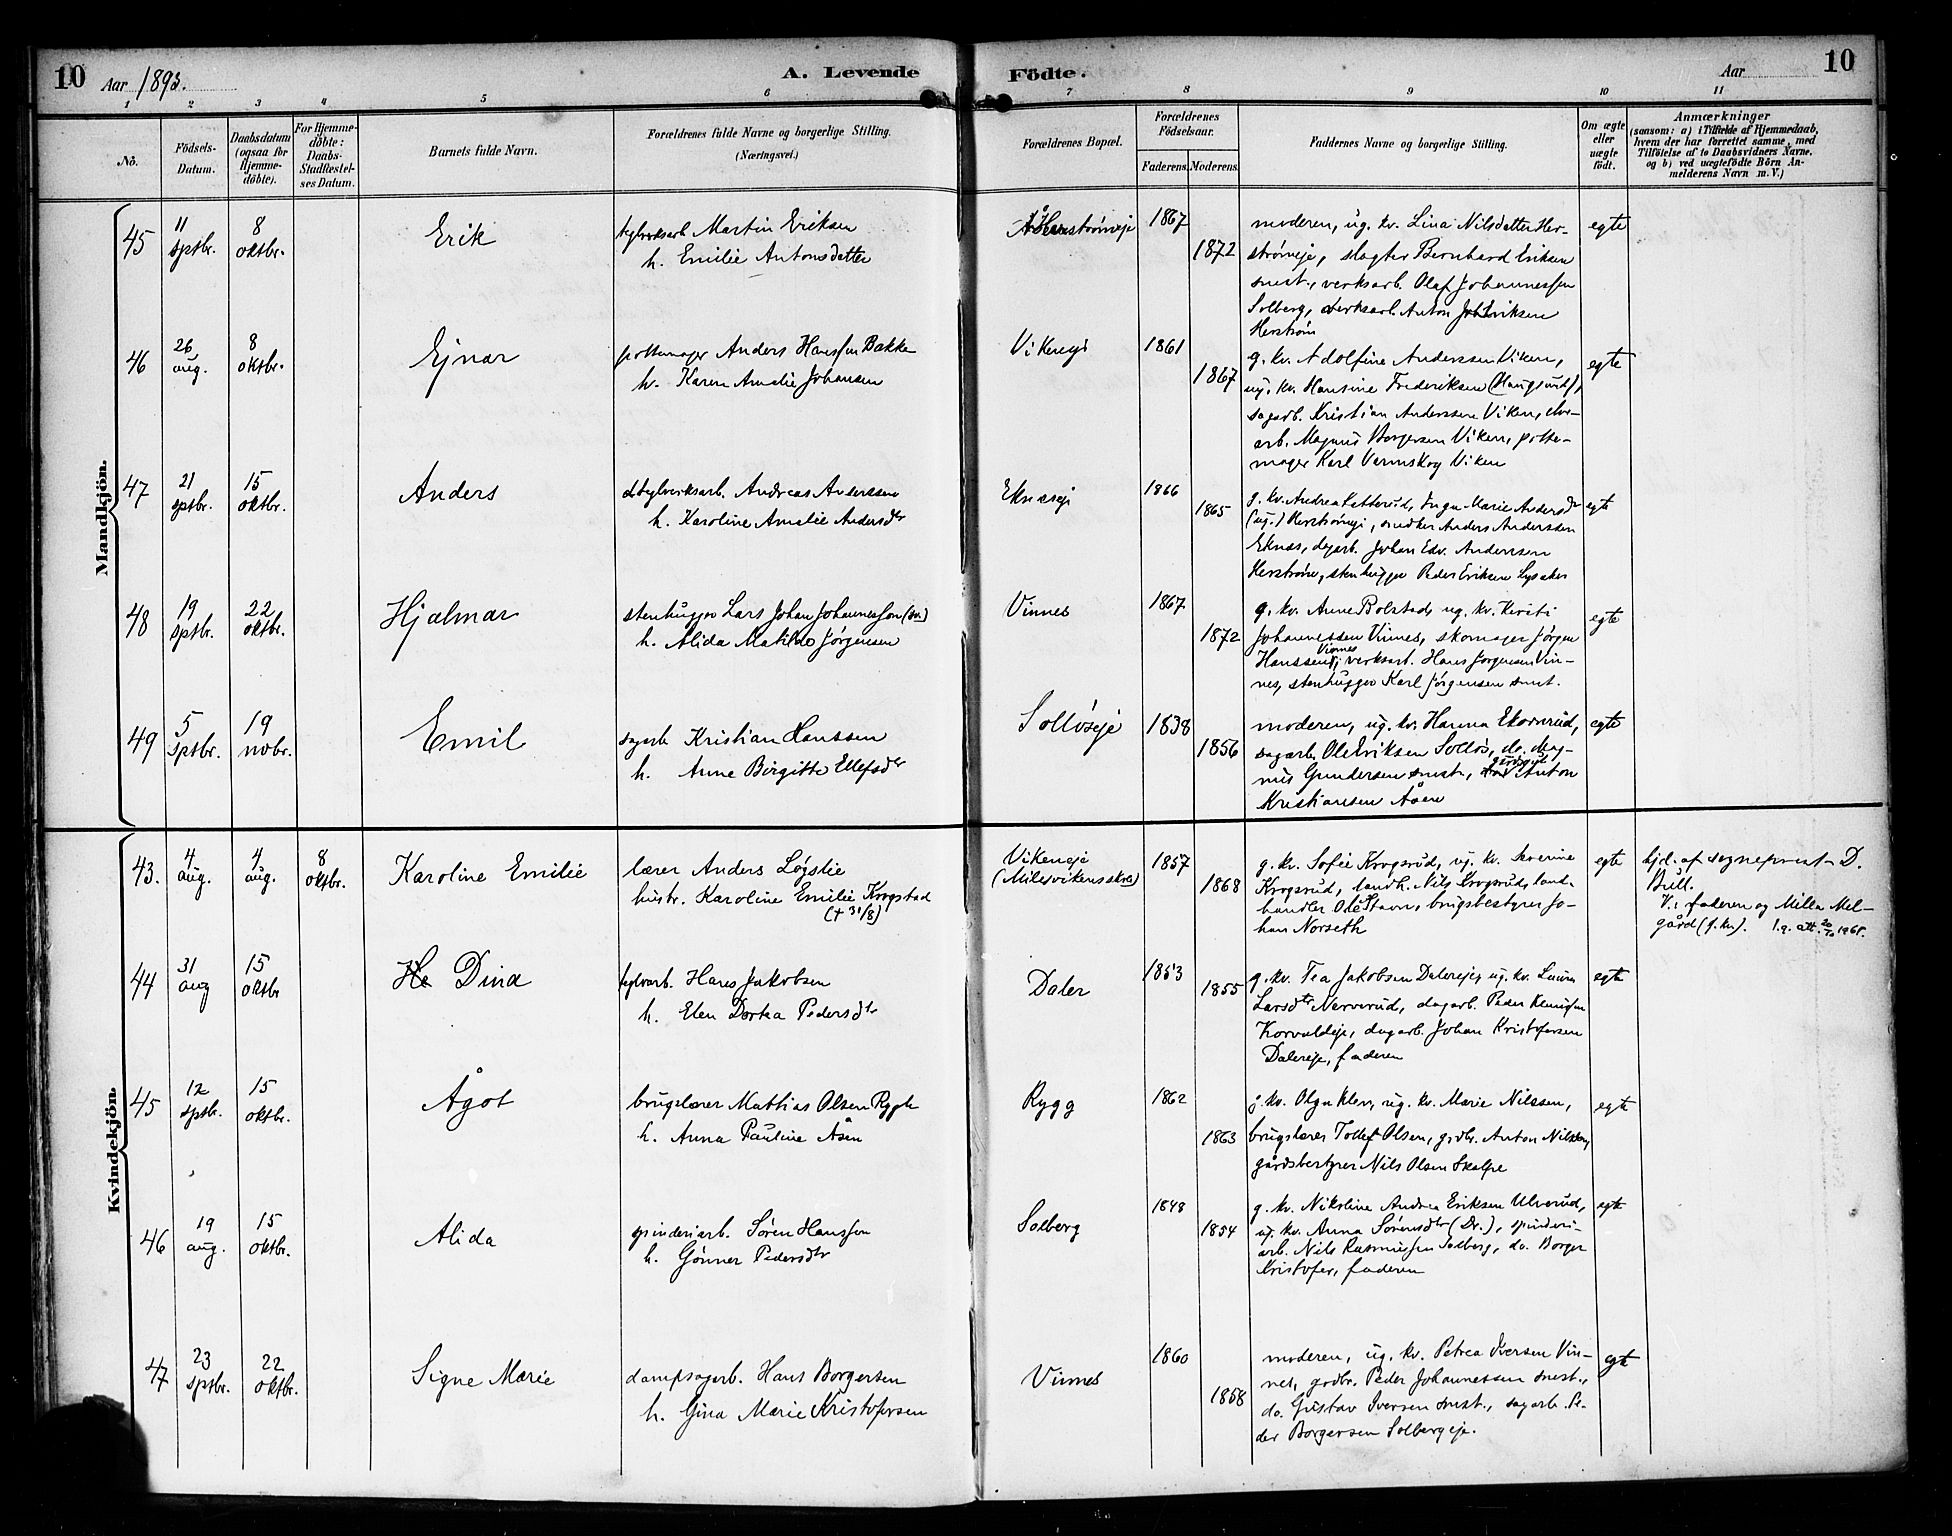 10 Aar 1893. A. Levende Födte. Aar 10
1 2 3 4 5 6 7 8 9 10 11
No.
Födsels-
Datum.
Daabsdatum
(ogsaa for
Hjemme-
döbte).
For Hjemme-
döbte:
Daabs-
Stadfæstel-
ses Datum.
Barnets fulde Navn.
Forældrenes fulde Navne og borgerlige Stilling.
(Næringsvei.)
Forældrenes Bopæl.
Forældrenes
Födselsaar.
Faderens. Moderens.
Faddernes Navne og borgerlige Stilling.
Om ægte
eller
uægte
födt.
Anmærkninger
(saasom: a) i Tilfælde af Hjemmedaab,
hvem der har forrettet samme, med
Tilföielse af to Daabsvidners Navne,
og b) ved uægtefödte Börn An-
melderens Navn m. V.)
Mandkjön.
45
11
sptbr.
8
oktbr.
Erik
teglverksarb. Martin Eriksen
h. Emilie Antonsdatter
Herstrømeje
1867
1872
moderen, ug. kv. Lina Nilsdatter Her-
strømeje, slagter Bernhard Eriksen
smst., verksarb. Olaf Johannessen
Solberg, verksarb. Anton Eriksen
Herstrøm
egte
46
26
aug.
8
oktbr.
Ejnar
pottemager Anders Hanssen Bakke
h. Karen Amalie Johansen
Vikeneje
1861
1867
g. kv. Adolfine Anderssen Viken,
ug. kv. Hansine Frederiksen (Haugsund),
sagarb. Kristian Anderssen Viken,
arb. Magnus Borgersen Viken, potte-
mager Karl Vermskog Viken
egte
47
21
sptbr.
15
oktbr.
Anders
teglverksarb. Andreas Anderssen
h. Karoline Amalie Andersdtr
Eknæseje
1866
1865
g. kv. Andrea Setterud, Inga Marie Andersdtr
(ug.) Herstrømeje, snedker Anders Anderssen
Eknæs, dagarb. Johan Edv. Anderssen
Herstrøm, stenhugger Peder Eriksen Lysaker
egte
48
19
sptbr.
22
oktbr.
Hjalmar
stenhugger Lars Johan Johannessen (sv.)
h. Alida Matilde Jørgensen
Vinnes
1867
1872
g. kv. Anne Bolstad, ug. kv. Kersti
Johannessen Vinnes, skomager Jørgen
Hanssen Vinnes, verksarb. Hans Jørgensen Vin-
nes, stenhugger Karl Jørgensen smst.
egte
49
5
sptbr.
19
novbr.
Emil
sagarb. Kristian Hanssen
h. Anne Birgitte Ellefsdtr
Solløseje
1838
1856
moderen, ug. kv. Hanna Ekornrud,
sagarb. Ole Eriksen Solløs, do. Mag-
nus Gundersen smst., Anton
Kristiansen Åsen
egte
Kvindekjön.
43.
4
aug.
4
aug.
8
oktbr.
Karoline Emilie
lærer Anders Løgslie
hustr. Karoline Emilie Krogstad
(+ 31/8)
Vikeneje
(Milesvikens skole)
1857
1868
g. kv. Sofie Krogsrud, ug. kv. Severine
Krogsrud, landh. Nils Krogsrud, land-
handler Ole Stavn, brugsbestyrer Jo-
han Norseth
egte
hjd. af sogneprest D.
Bull.
V.: faderen og Milla Mel-
gård (g. kv.). l.a. att. 20/10 1965.
44
31
aug
15
oktbr
Dina
teglvarb. Hans Jakobsen
h. Elen Dortea Pedersdtr
Daler
1853
1855
g. kv. Tea Jakobsen Dalereje, ug. kv. Laura
Larsdtr Nerverud, dagarb. Peder
Korvaldeje, dagarb. Johan Kristofersen
Dalereje, faderen
egte
45
12
sptbr.
15
oktbr.
Ågot
brugslærer Mattias Olsen Rygh
h. Anna Pauline Åsen
Rygg
1862
1863
g. kv. Olga Klev, ug. kv. Marie Nilssen,
brugslærer Tollef Olsen, grdbr. Anton Nilssen,
gårdsbestyrer Nils Olsen Skalpe
egte
46
19
aug.
15
oktbr.
Alida
spinderiarb. Søren Hanssen
h. Gønner Pedersdtr
Solberg
1848
1854
g. kv. Nikoline Andrea Eriksen Ulverud,
ug. kv. Anna Sørensdtr (Dr.), spinderi-
arb. Nils Rasmussen Solberg, do. Borger
Kristofer, faderen
egte
47
23
sptbr.
22
oktbr.
Signe Marie
dampsagarb. Hans Borgersen
h. Gina Marie Kristofersen
Vinnes
1860
1858
moderen, ug. kv. Petrea Iversen Vin-
nes, grdbr. Peder Johannessen smst.,
do. Gustav Iversen smst., sagarb. Pe-
der Borgersen Solbergeje.
egte